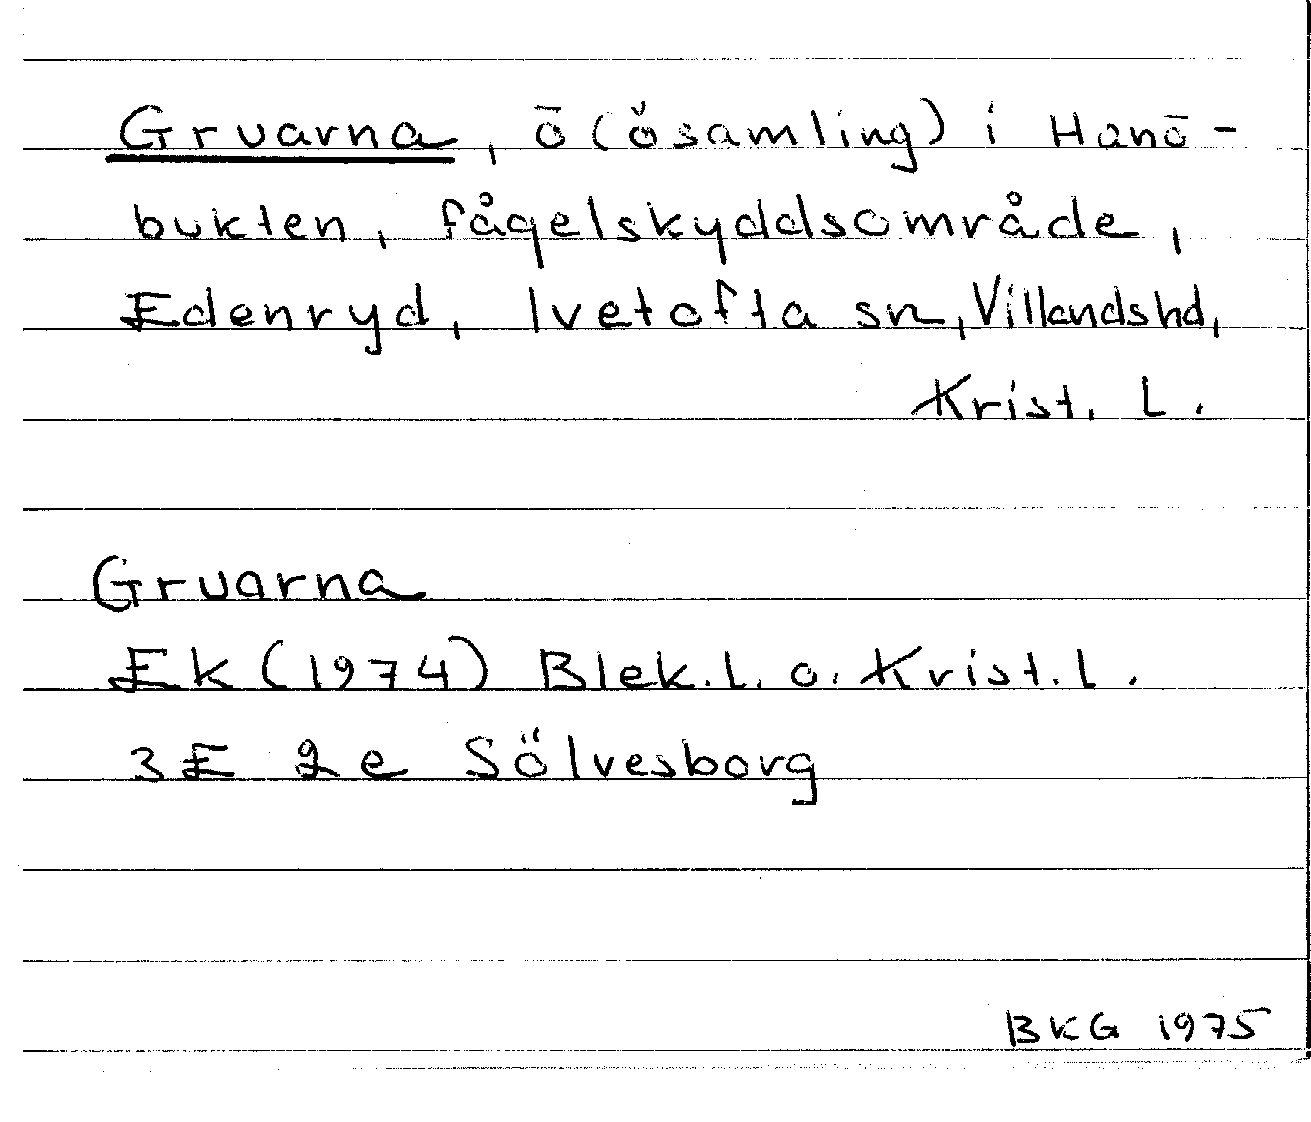 Gruarna, ö (ösamling) i Hanö-
bukten, fågelskyddsområde,
Edenryd, Ivetofta sn, Villandshd,
Krist. L.
Gruarna
Ek (1974) Blek. l. o. Krist. l.
3E 2e Sölvesborg
BKG 1975